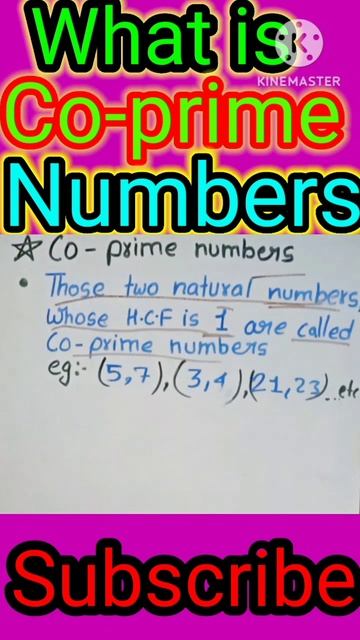 What is
KINEMASTER
Co-prime
Numbers
☆ Co-prime numbers
• Those two natural numbers,
whose H.C.F is 1 are called
Co-prime numbers
eg:- (5,7), (3,4), (21,23)...etc
Subscribe